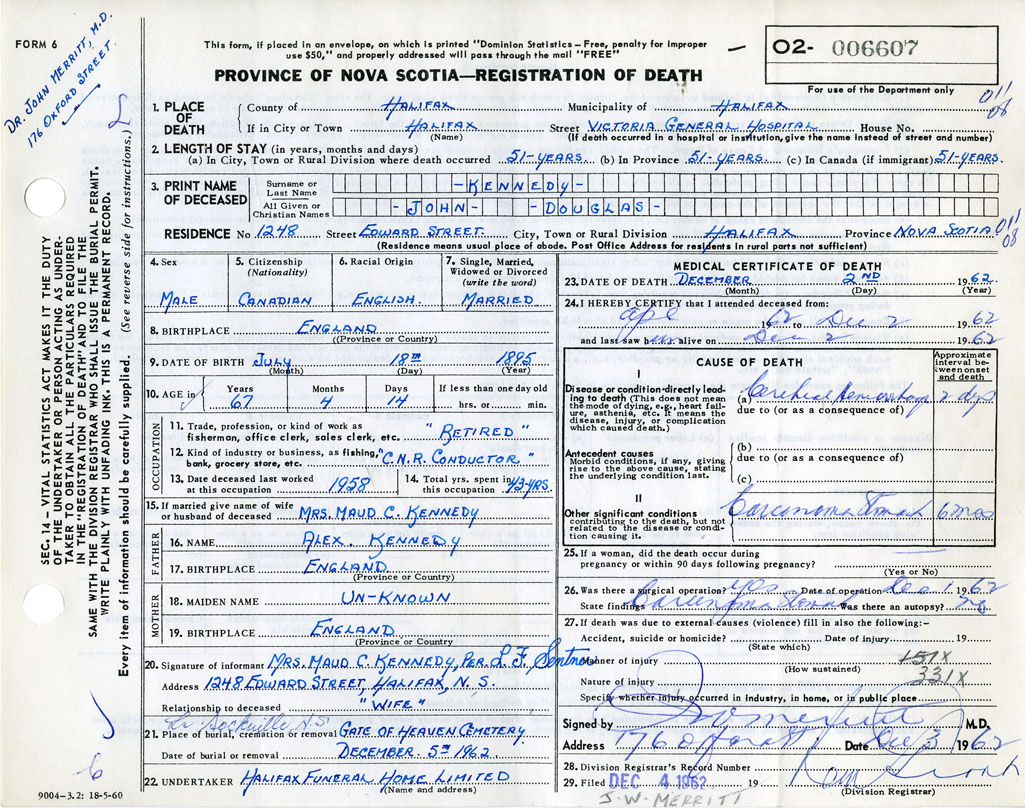 FORM 6
DR. JOHN MERRITT, M.D.
176 OXFORD STREET
This form, if placed in an envelope, on which is printed "Dominion Statistics – Free, penalty for improper
use $50," and properly addressed will pass through the mail "FREE"
PROVINCE OF NOVA SCOTIA—REGISTRATION OF DEATH
02- 006607
For use of the Department only
011
08
1. PLACE OF DEATH
County of HALIFAX Municipality of HALIFAX
If in City or Town HALIFAX Street VICTORIA GENERAL HOSPITAL House No.
(Name) (If death occurred in a hospital or institution, give the name instead of street and number)
2. LENGTH OF STAY (in years, months and days)
(a) In City, Town or Rural Division where death occurred 51-YEARS. (b) In Province 51-YEARS. (c) In Canada (if immigrant) 51-YEARS.
3. PRINT NAME OF DECEASED
Surname or Last Name -KENNEDY-
All Given or Christian Names -JOHN- -DOUGLAS-
RESIDENCE No. 1248 Street EDWARD STREET. City, Town or Rural Division HALIFAX Province NOVA SCOTIA
011
08
(Residence means usual place of abode. Post Office Address for residents in rural parts not sufficient)
4. Sex
MALE
5. Citizenship
(Nationality)
CANADIAN
6. Racial Origin
ENGLISH.
7. Single, Married,
Widowed or Divorced
(write the word)
MARRIED
8. BIRTHPLACE ENGLAND
(Province or Country)
9. DATE OF BIRTH JULY 18TH 1895
(Month) (Day) (Year)
10. AGE in
Years Months Days If less than one day old
67 4 14 hrs. or min.
OCCUPATION
11. Trade, profession, or kind of work as
fisherman, office clerk, sales clerk, etc. "RETIRED"
12. Kind of industry or business, as fishing,
bank, grocery store, etc. "C.N.R. CONDUCTOR"
13. Date deceased last worked
at this occupation 1958
14. Total yrs. spent in
this occupation 43-YRS.
15. If married give name of wife
or husband of deceased MRS. MAUD C. KENNEDY
FATHER
16. NAME ALEX. KENNEDY
17. BIRTHPLACE ENGLAND
(Province or Country)
MOTHER
18. MAIDEN NAME UN-KNOWN
19. BIRTHPLACE ENGLAND.
(Province or Country)
20. Signature of informant MRS. MAUD C. KENNEDY, PER. L F Sentner
Address 1248 EDWARD STREET, HALIFAX, N.S.
Relationship to deceased "WIFE"
Lr Sackville, N.S
21. Place of burial, cremation or removal GATE OF HEAVEN CEMETERY
Date of burial or removal DECEMBER. 5TH 1962
22. UNDERTAKER HALIFAX FUNERAL HOME LIMITED
(Name and address)
MEDICAL CERTIFICATE OF DEATH
23. DATE OF DEATH DECEMBER 2ND 1962.
(Month) (Day) (Year)
24. I HEREBY CERTIFY that I attended deceased from:
apl 1962 to Dec 2 1962
and last saw him alive on Dec 2 1962
CAUSE OF DEATH
Approximate
interval be-
tween onset
and death
I
Disease or condition directly lead-
ing to death (This does not mean
the mode of dying, e.g., heart fail-
ure, asthenia, etc. It means the
disease, injury, or complication
which caused death.)
(a) Cerebral Hemorrhage 2 dys
due to (or as a consequence of)
Antecedent causes
Morbid conditions, if any, giving
rise to the above cause, stating
the underlying condition last.
(b)
due to (or as a consequence of)
(c)
II
Other significant conditions
contributing to the death, but not
related to the disease or condi-
tion causing it.
Carcinoma Stomach 6 mos
25. If a woman, did the death occur during
pregnancy or within 90 days following pregnancy?
(Yes or No)
26. Was there a surgical operation? yes Date of operation Dec 1 1962
State findings Carcinoma Stomach Was there an autopsy? no
27. If death was due to external causes (violence) fill in also the following:-
Accident, suicide or homicide? Date of injury 19
(State which)
Manner of injury 151X
(How sustained)
Nature of injury 331X
Specify whether injury occurred in industry, in home, or in public place
Signed by J W Merritt M.D.
Address 176 Oxford St Date Dec 3 1962
28. Division Registrar's Record Number
29. Filed DEC 4 1962 19
(Division Registrar)
J. W. MERRITT
SEC. 14 – VITAL STATISTICS ACT MAKES IT THE DUTY
OF THE UNDERTAKER OR PERSON ACTING AS UNDER-
TAKER "TO OBTAIN ALL THE PARTICULARS REQUIRED
IN THE "REGISTRATION OF DEATH" AND TO FILE THE
SAME WITH THE DIVISION REGISTRAR WHO SHALL ISSUE THE BURIAL PERMIT.
WRITE PLAINLY WITH UNFADING INK. THIS IS A PERMANENT RECORD.
Every item of information should be carefully supplied. (See reverse side for instructions.)
9004-3.2: 18-5-60